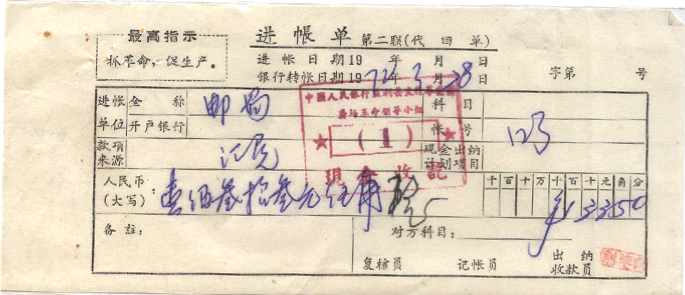 最高指示
抓革命，促生产。
进帐单 第二联(代回单)
进帐日期19 年 月 日
银行转帐日期1972年3月28日 字第 号
进帐单位 全称 邮局 科目
开户银行 帐号
款项来源 汇兑 现金出纳计划项目
中国人民银行
革命领导小组
★ (1) ★
现金收讫
人民币：(大写) 壹佰叁拾叁元伍角整 千百十万千百十元角分 ¥13350
备注： 对方科目：
复核员 记帐员 出纳收款员